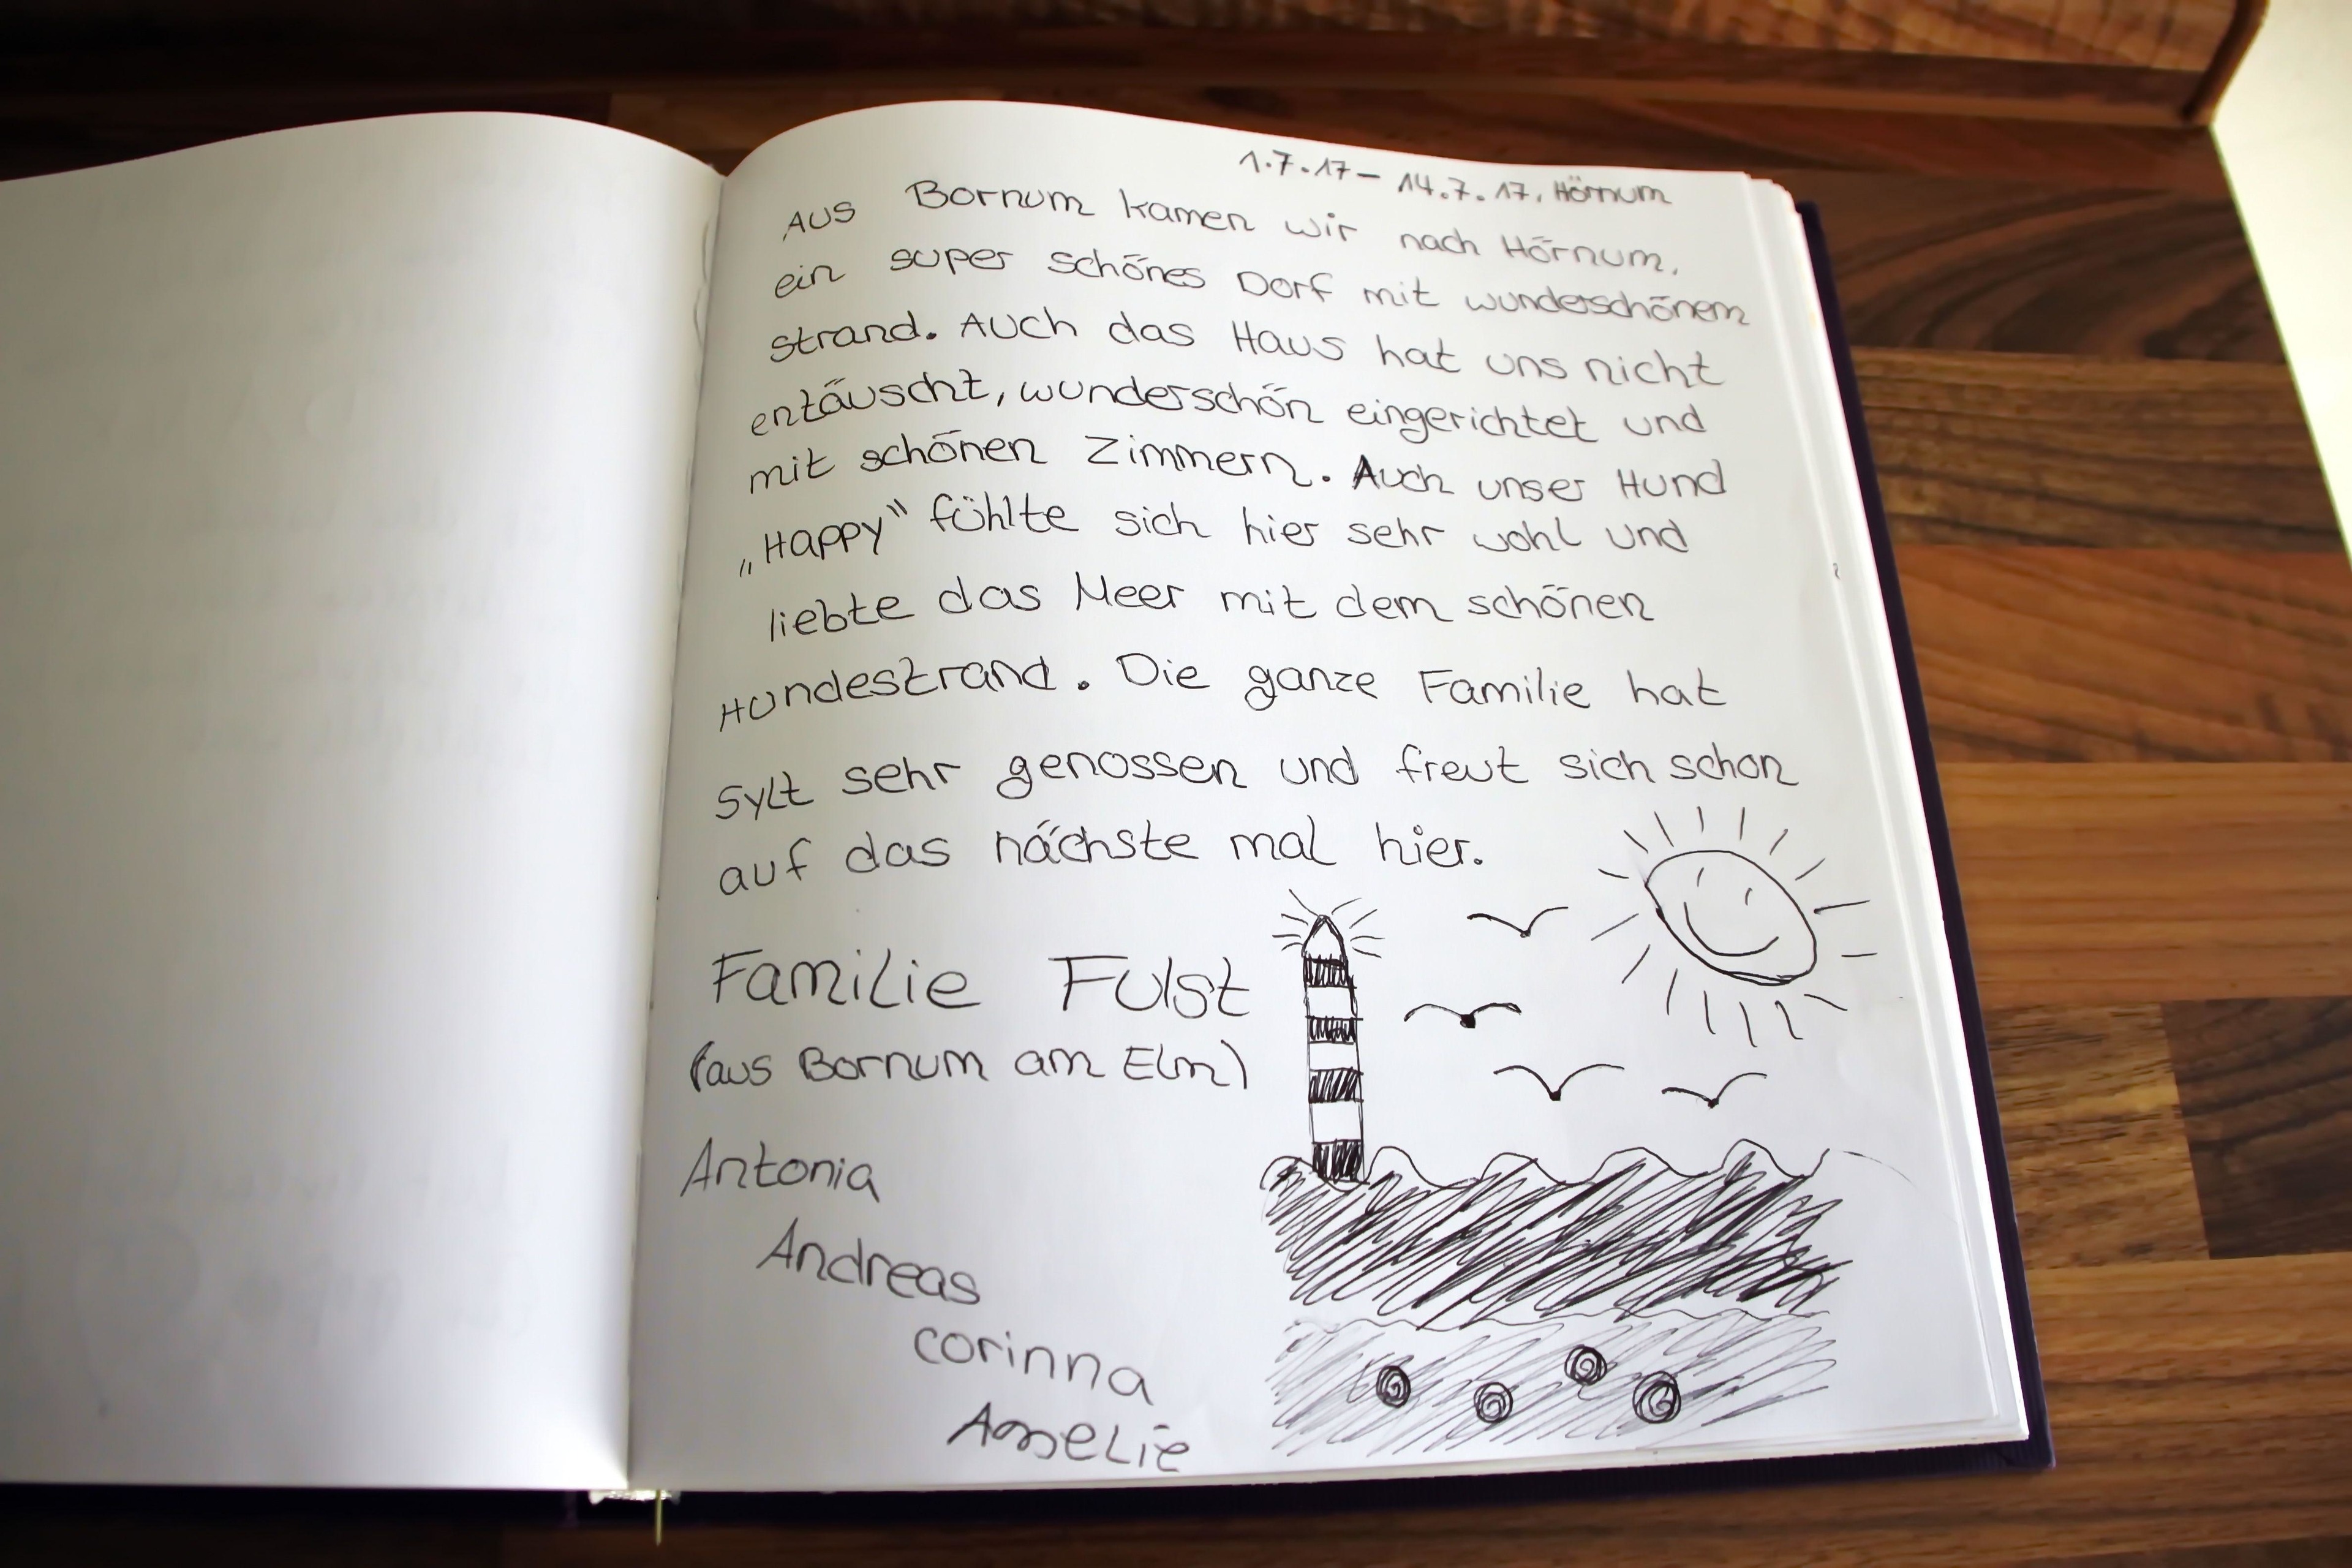 1.7.17 – 14.7.17, Hörnum
Aus Bornum kamen wir nach Hörnum,
ein super schönes Dorf mit wunderschönem
strand. Auch das Haus hat uns nicht
entäuscht, wunderschön eingerichtet und
mit schönen Zimmern. Auch unser Hund
„Happy“ fühlte sich hier sehr wohl und
liebte das Meer mit dem schönen
Hundestrand. Die ganze Familie hat
Sylt sehr genossen und freut sich schon
auf das nächste mal hier.
Familie Fulst
(aus Bornum am Elm)
Antonia
Andreas
Corinna
Amelie